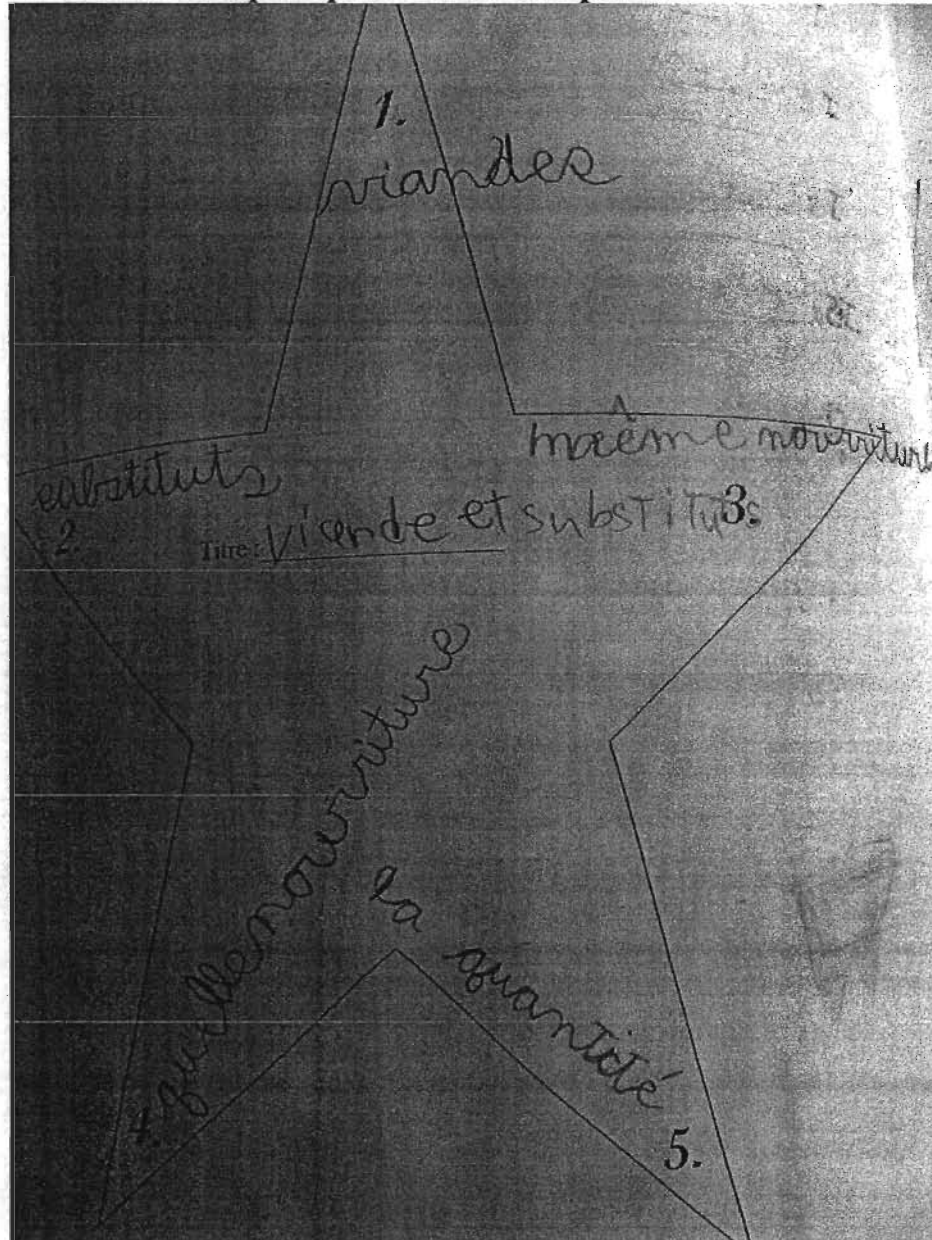 1.
viandes
substituts
2.
maême nourriture
3.
Titre: Viande et substituts
4. quelle nourriture
la quantité
5.